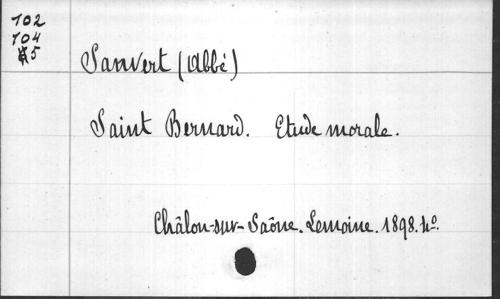 102
104
5
Sanvert (Abbé)
Saint Bernard. Etude morale.
Châlon-sur-Saône. Lemoine. 1898. 4o.